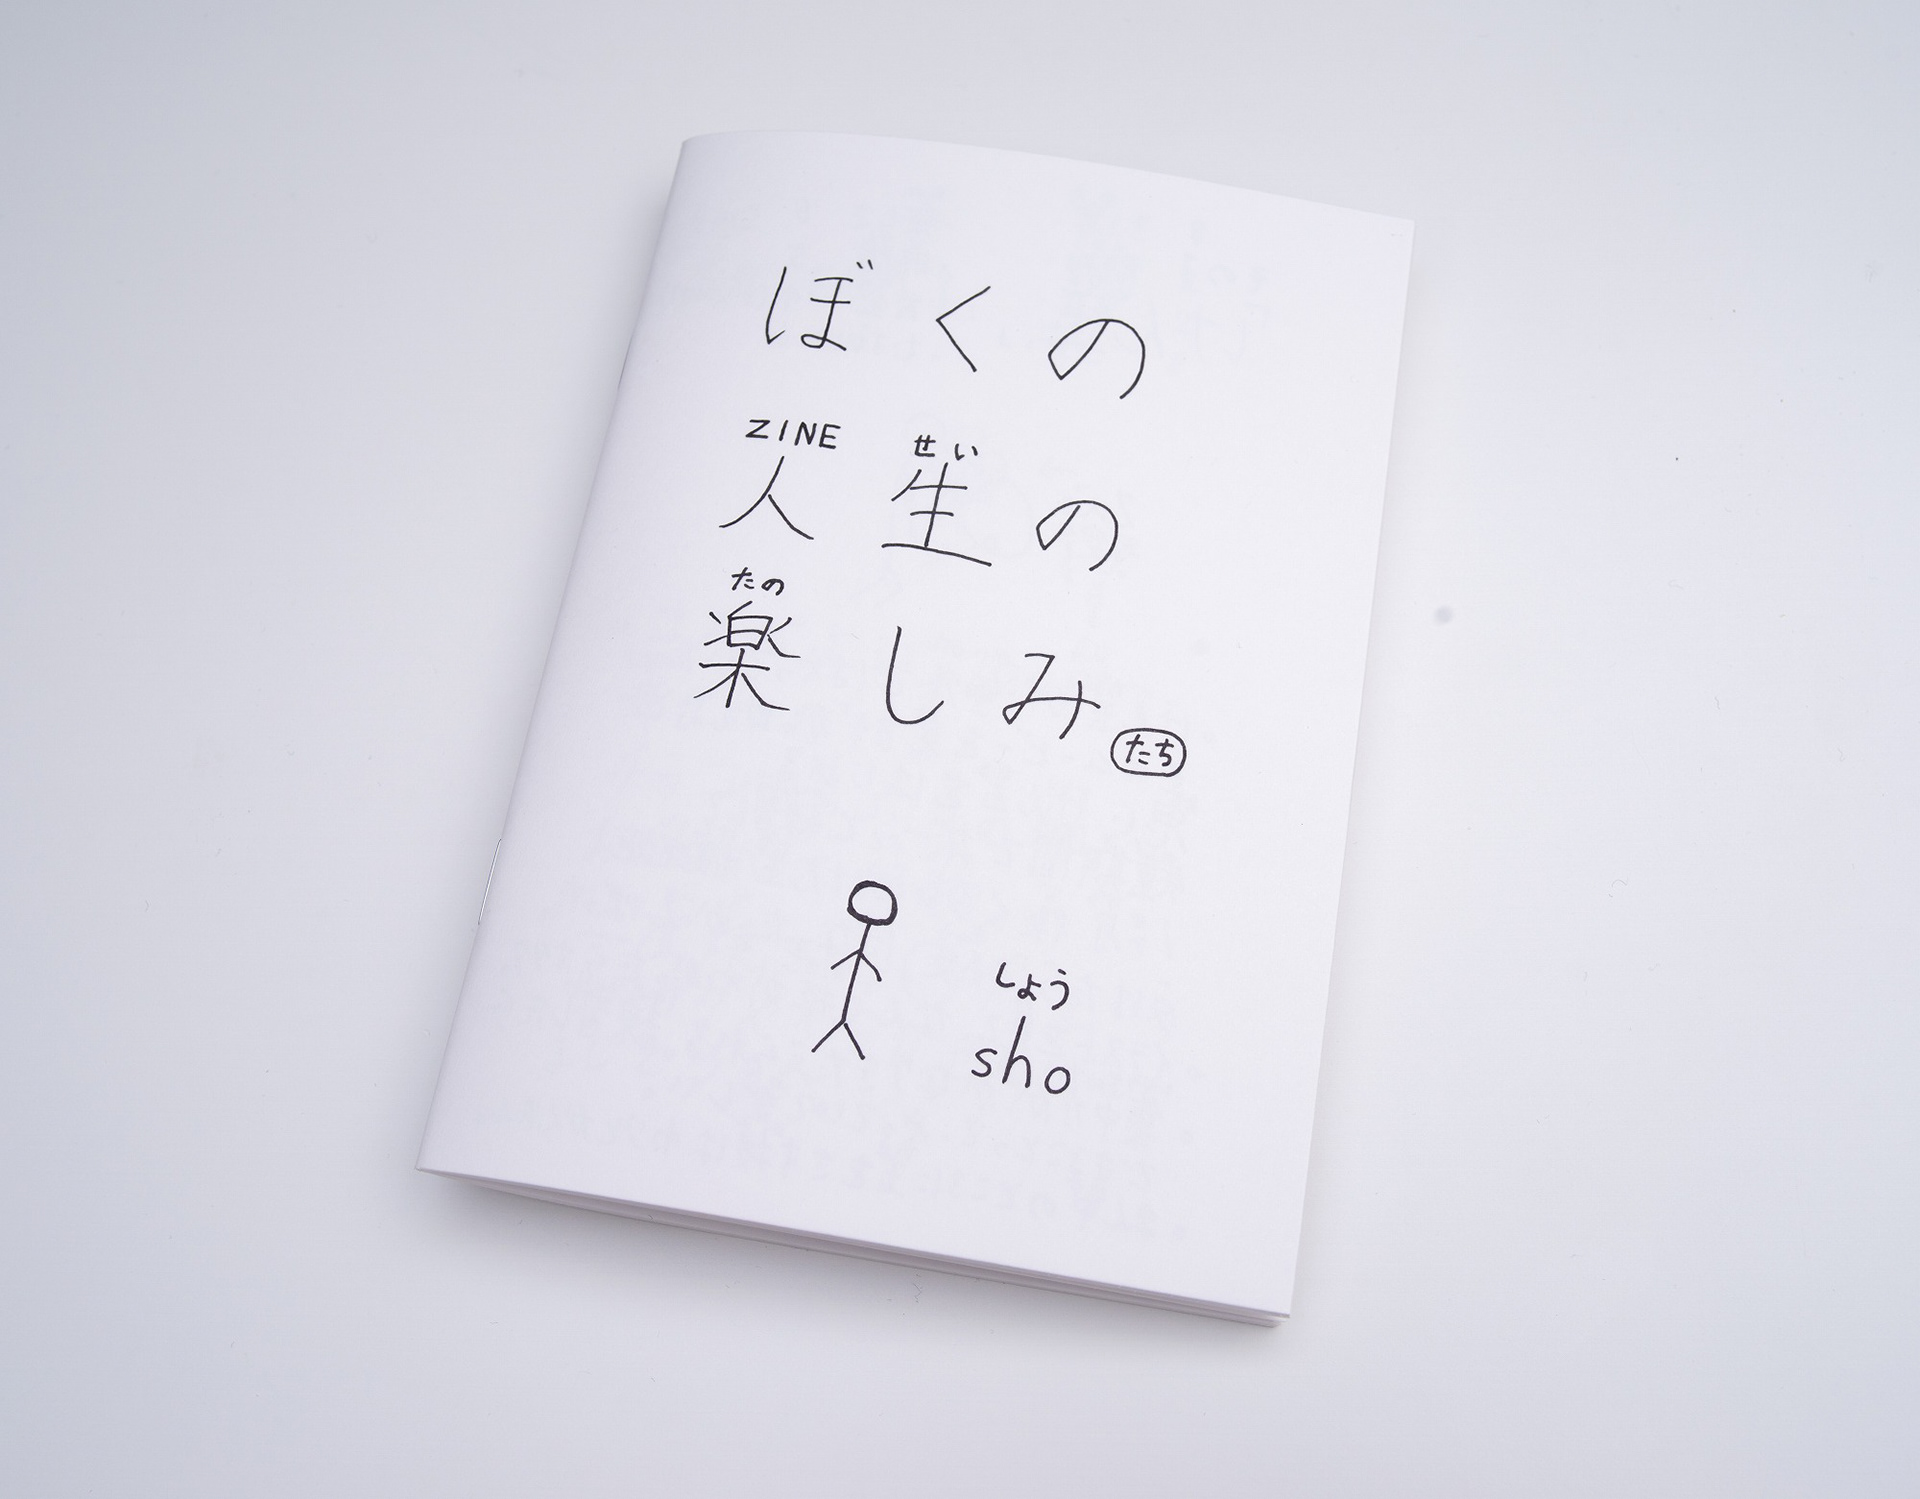 ぼくの
ZINE せい
人生の
たの
楽しみ
たち
しょう
sho